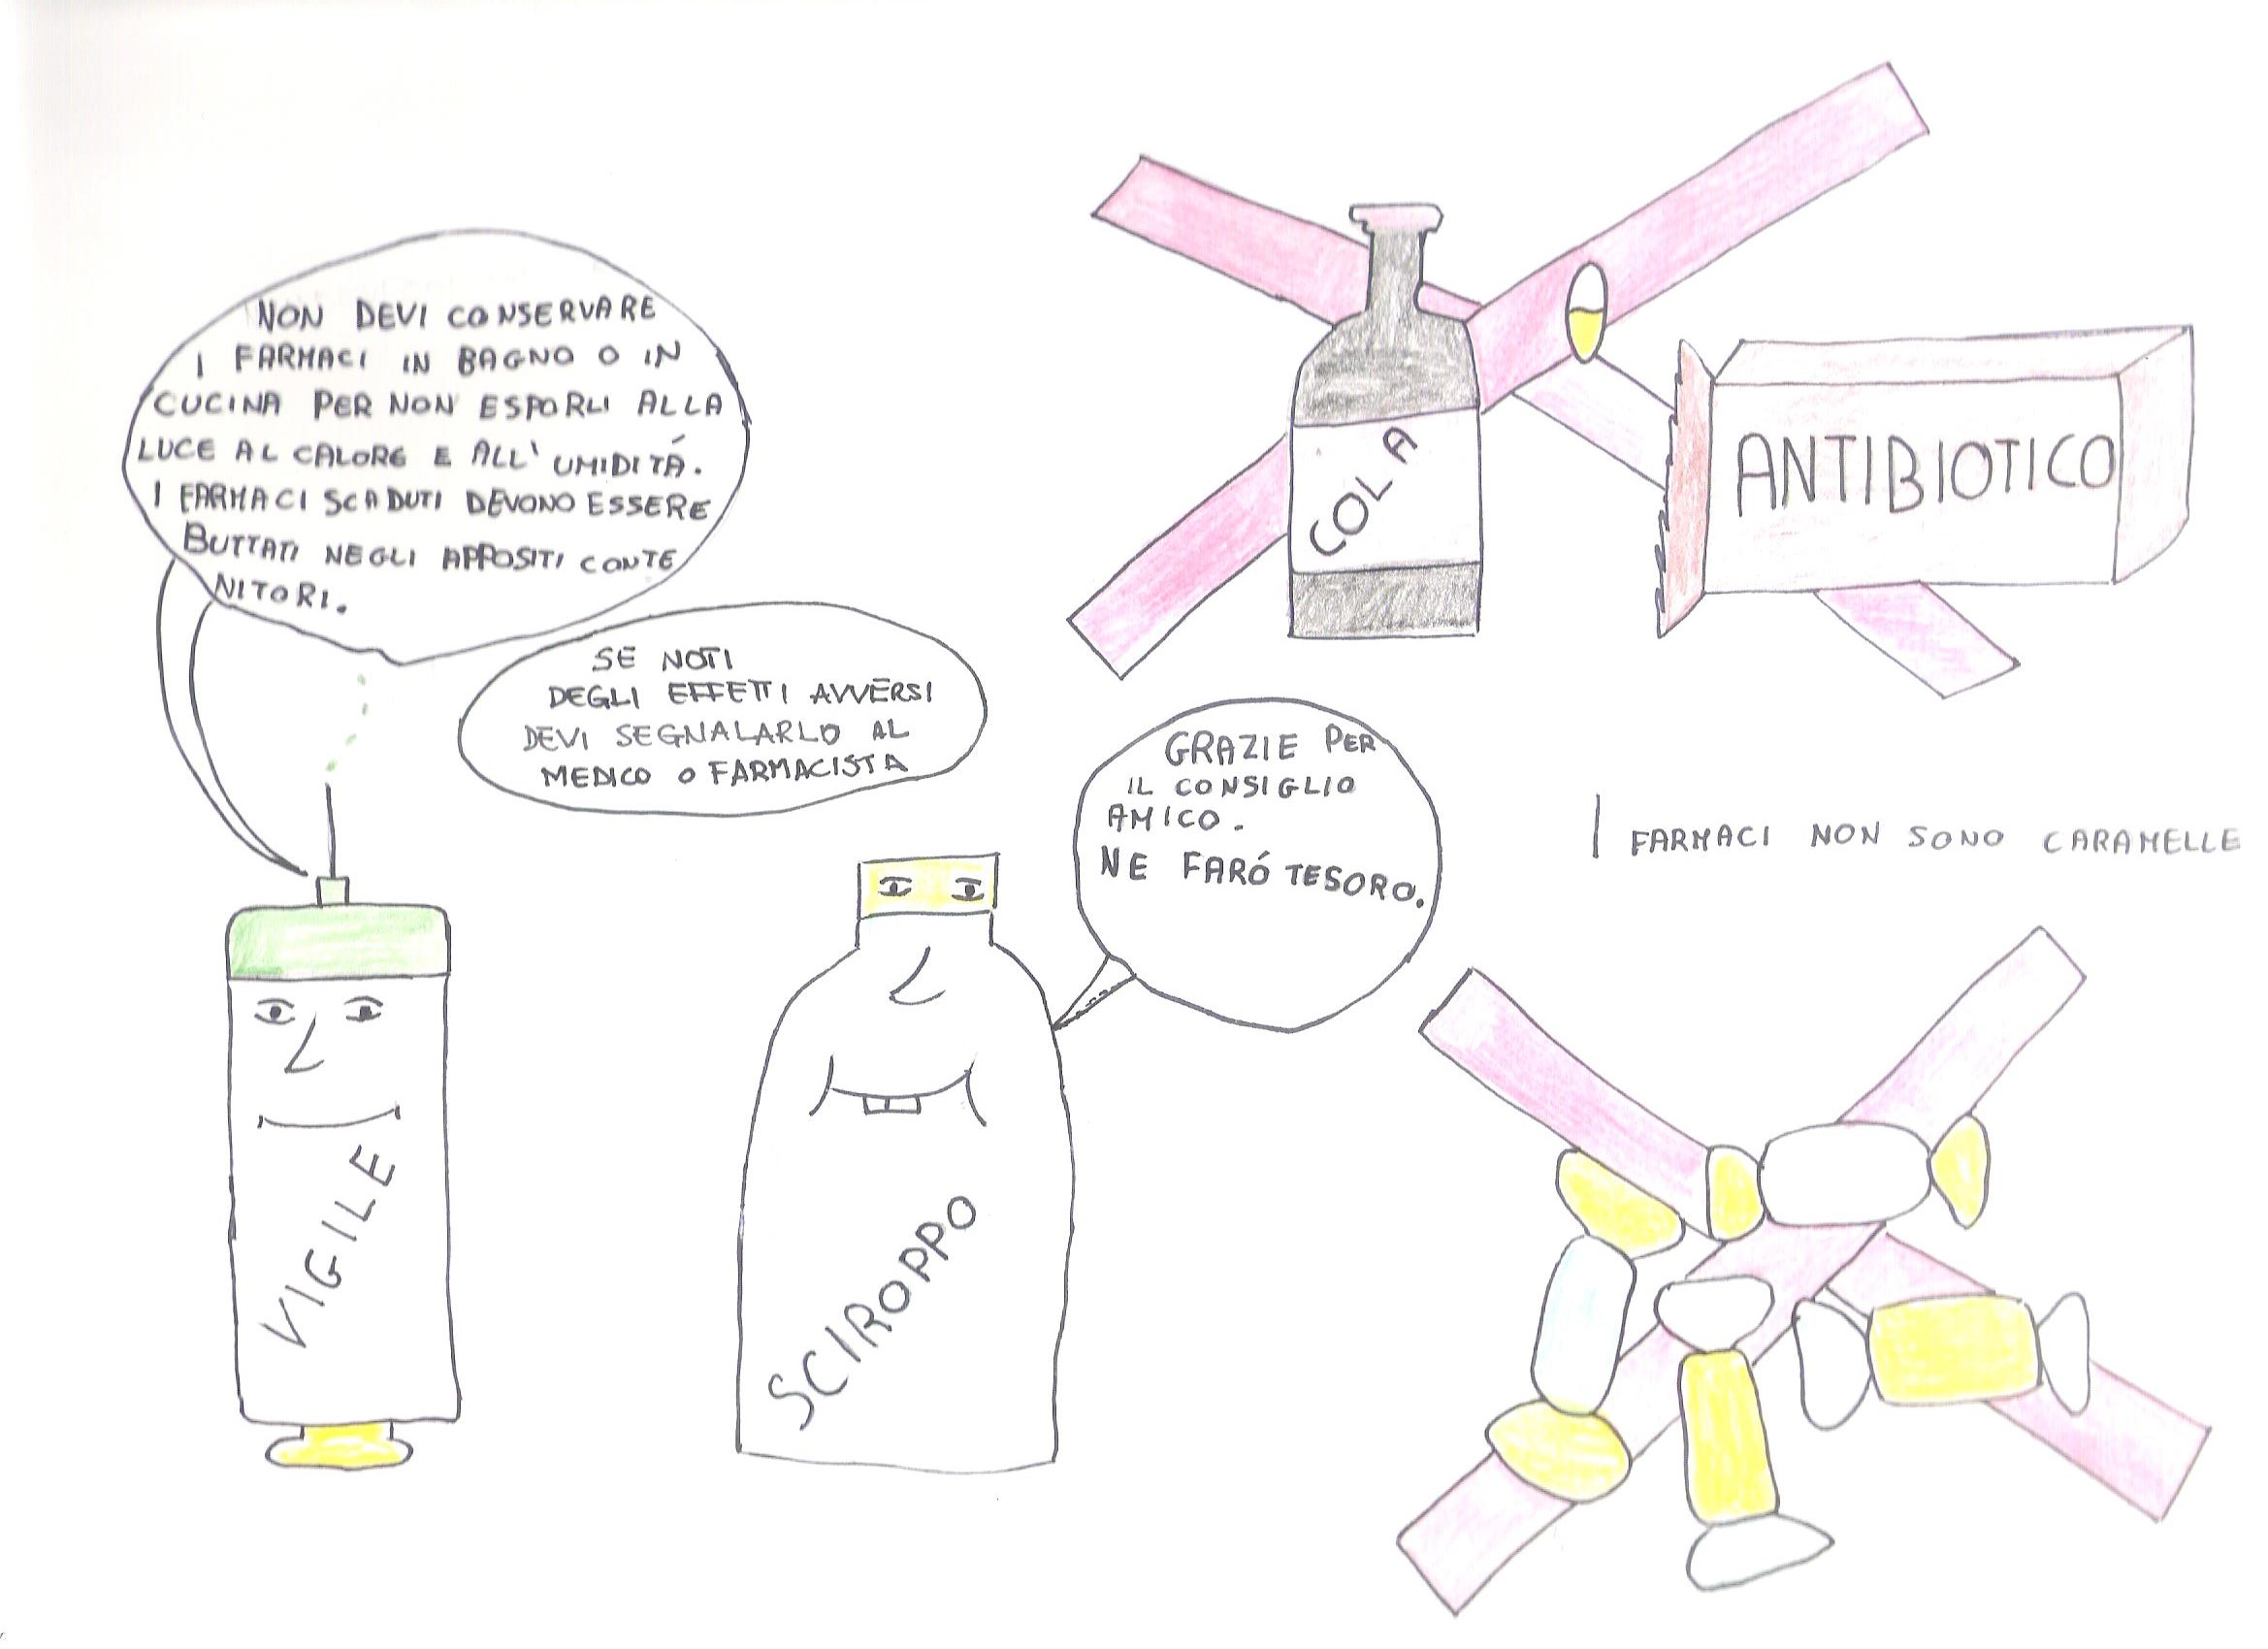 NON DEVI CONSERVARE
I FARMACI IN BAGNO O IN
CUCINA PER NON ESPORLI ALLA
LUCE AL CALORE E ALL'UMIDITÁ.
I FARMACI SCADUTI DEVONO ESSERE
BUTTATI NEGLI APPOSITI CONTE
NITORI.
SE NOTI
DEGLI EFFETTI AVVERSI
DEVI SEGNALARLO AL
MEDICO O FARMACISTA
GRAZIE PER
IL CONSIGLIO
AMICO.
NE FARÓ TESORO.
VIGILE
SCIROPPO
COLA
ANTIBIOTICO
I FARMACI NON SONO CARAMELLE